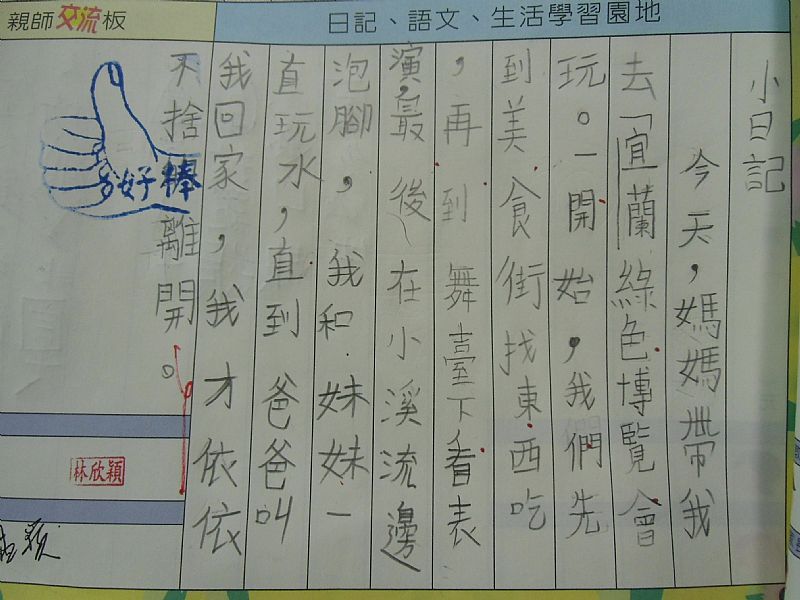 親師交流板
日記、語文、生活學習園地
小日記
今天，媽媽帶我
去「宜蘭綠色博覽會
玩。一開始，我們先
到美食街找東西吃
，再到舞臺下看表
演，最後在小溪流邊
泡腳，我和妹妹一
直玩水，直到爸爸叫
我回家，我才依依
不捨離開。
好棒
林欣穎